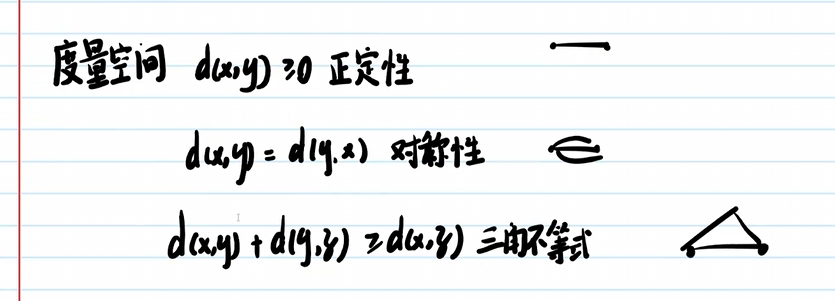 度量空间 d(x,y) ≥0 正定性
d(x,y) = d(y,x) 对称性
d(x,y) + d(y,z) ≥ d(x,z) 三角不等式